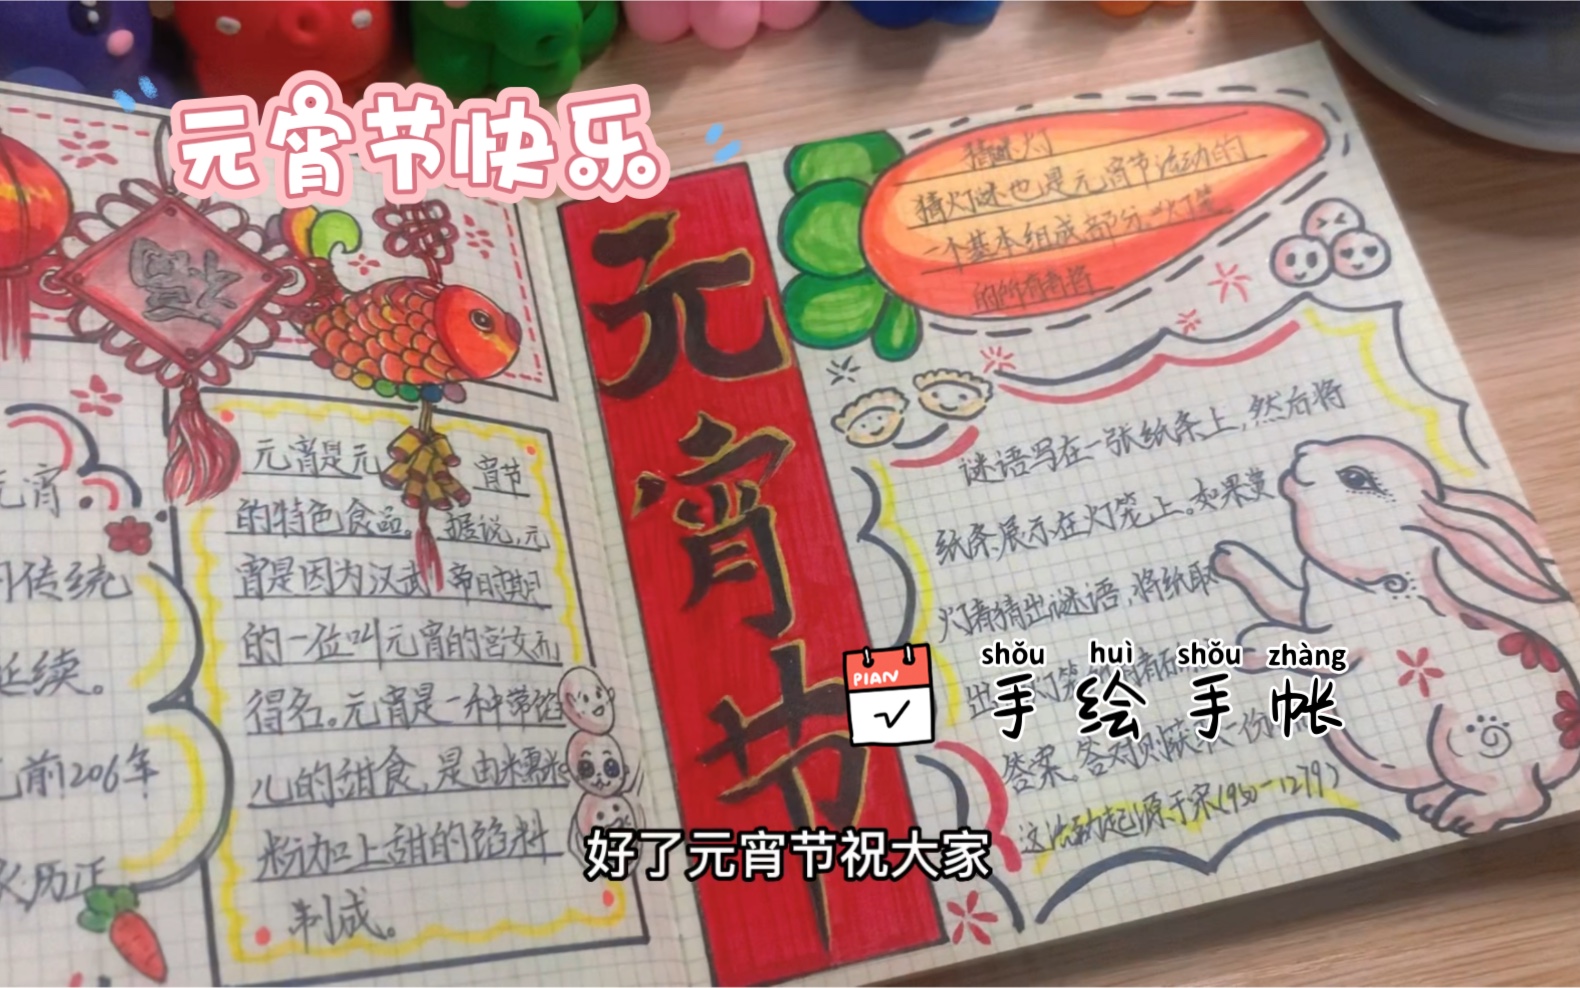 元宵节快乐
福
元宵
的传统
延续。
元前206年
农历正
元宵是元宵节
的特色食品。据说,元
宵是因为汉武帝时期
的一位叫元宵的宫女而
得名。元宵是一种带馅
儿的甜食,是由糯米
粉加上甜的馅料
制成。
元宵节
猜灯谜也是元宵节活动的
一个基本组成部分。灯笼
的所有者将
谜语写在一张纸条上,然后将
纸条展示在灯笼上。如果赏
灯者猜出谜语,将纸取
出
答案。答对则获
这活动起源于宋(950-1279)
PIAN
shǒu huì shǒu zhàng
手绘手帐
好了元宵节祝大家